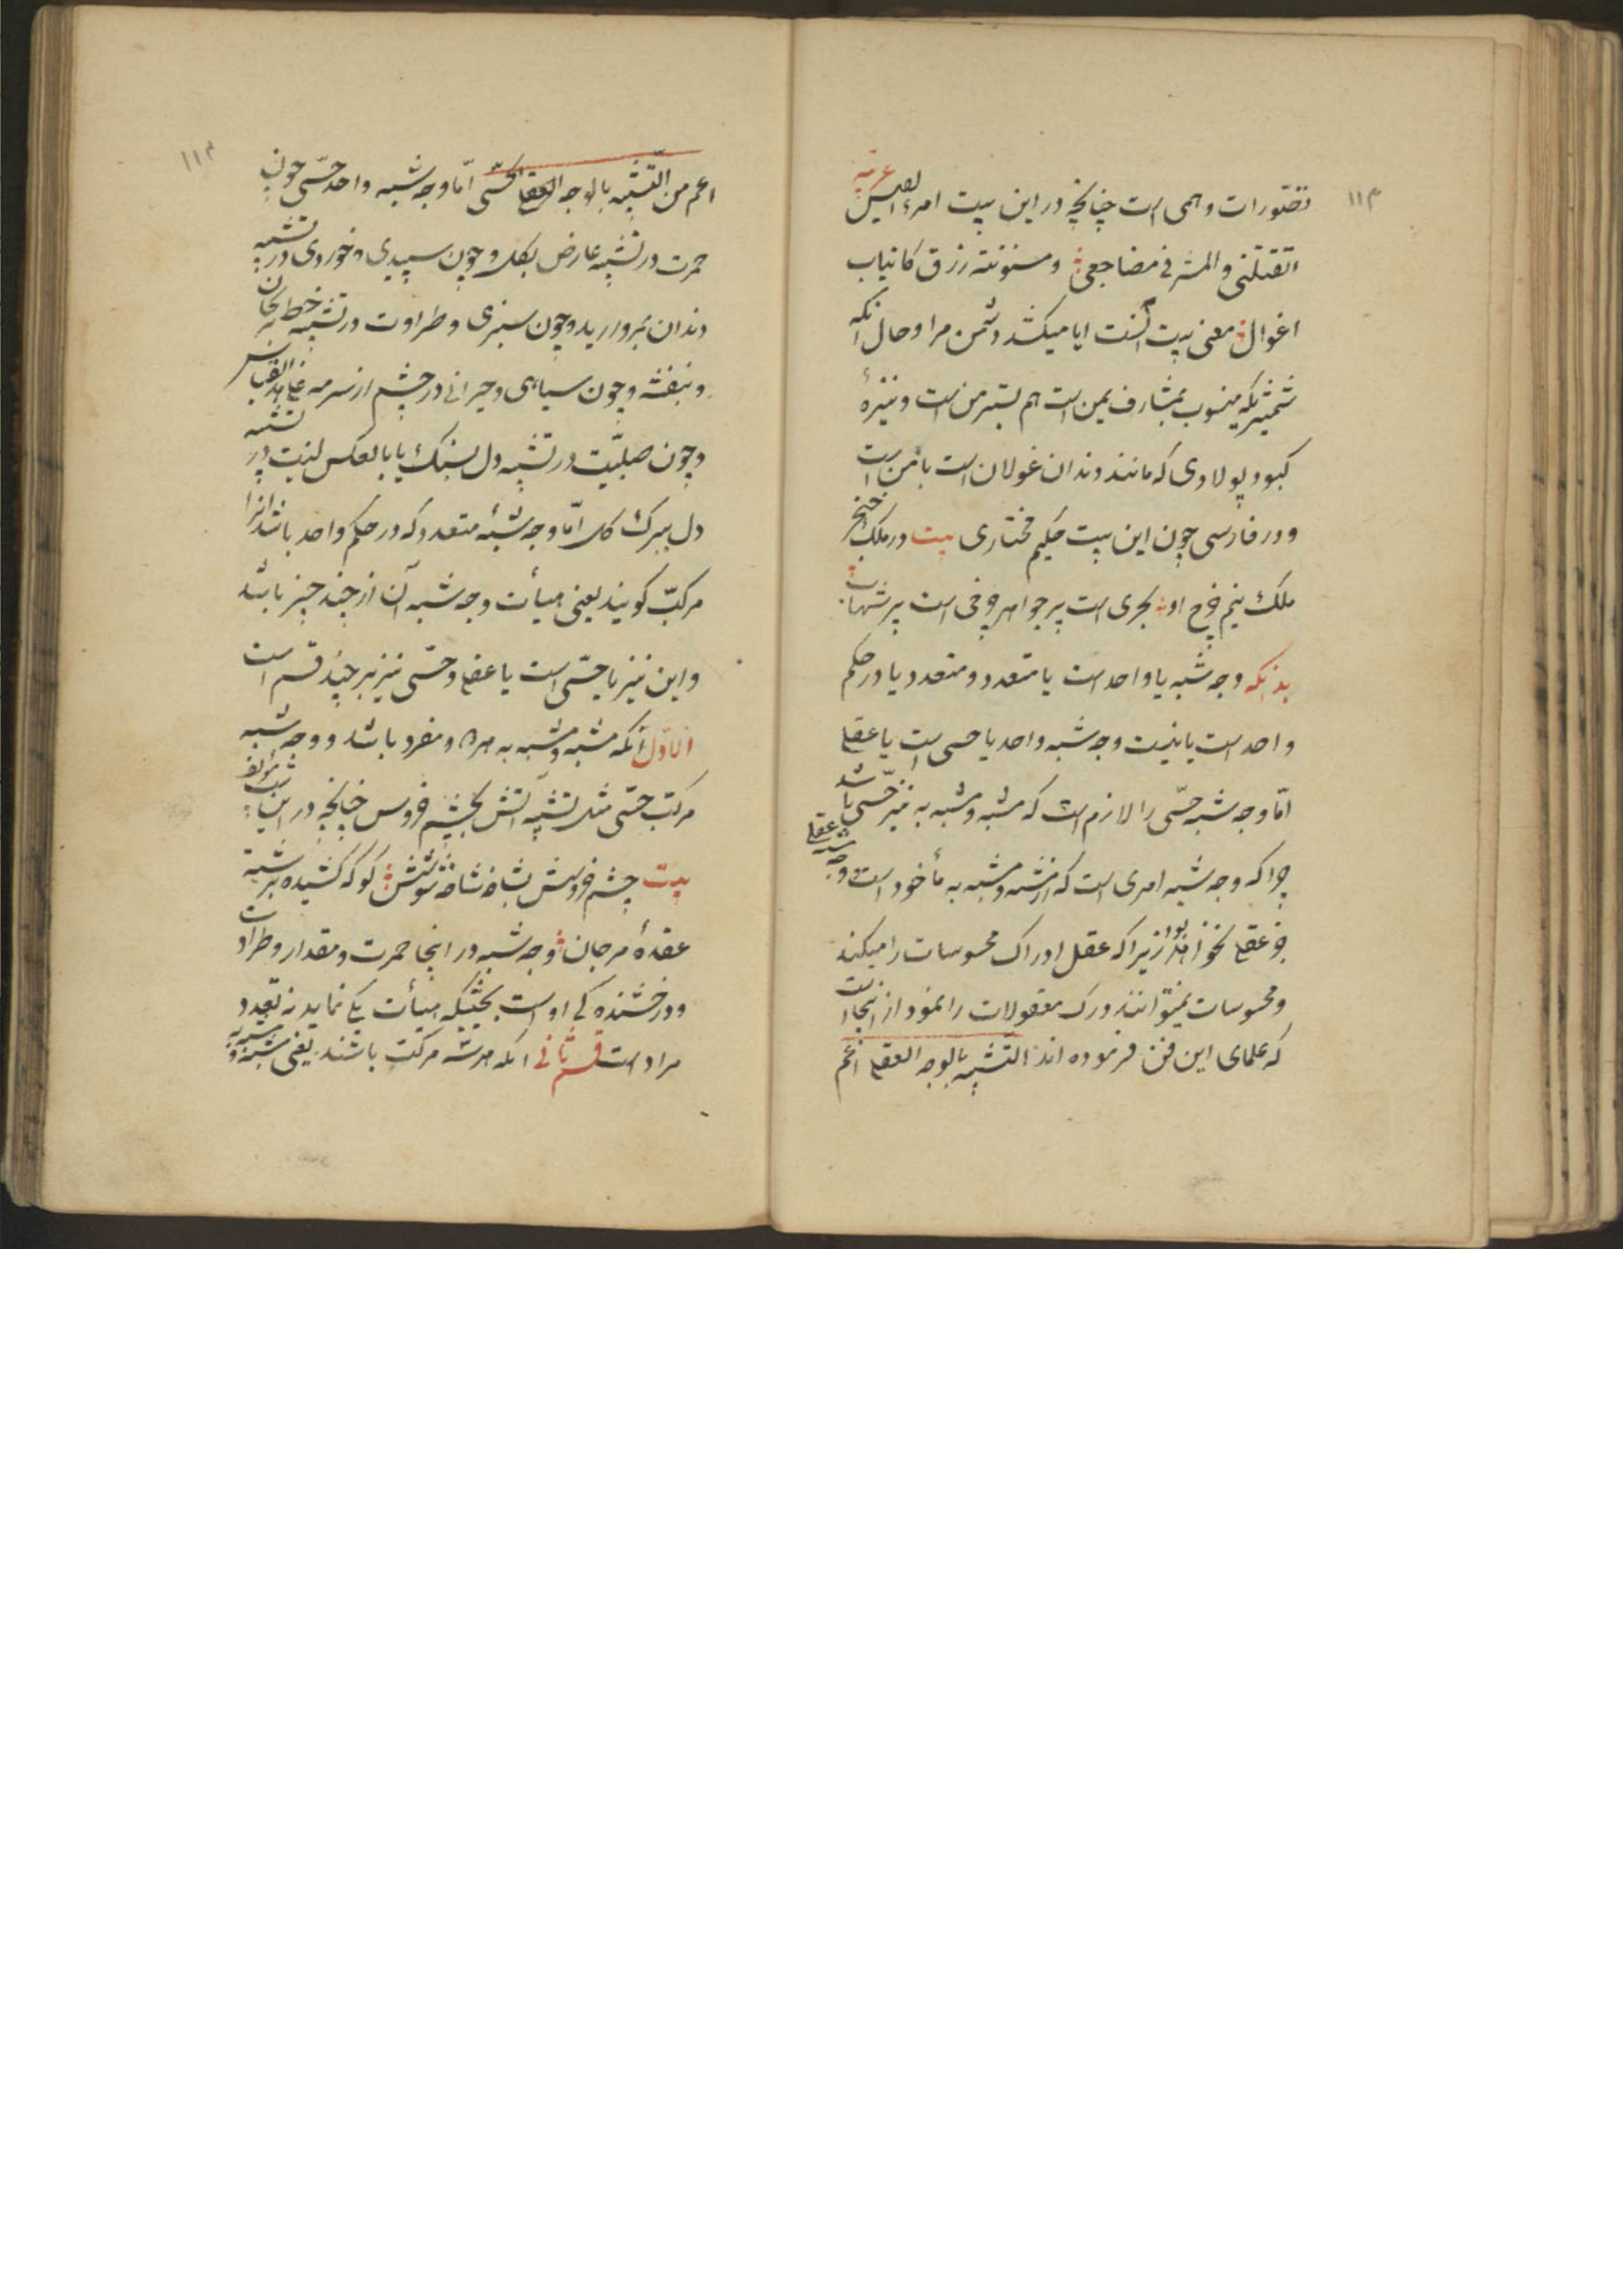 ۱۱۳
تصورات وهمی است چنانچه در این بیت امرء القیس عربیه
اتقتلنی و المشرفی مضاجعی و مسنونته زرق کانیاب
اغوال معنی بیت آنست ایا میکشد دشمن مرا و حال انکه
شمشیریکه منسوب بمشارف یمن است هم بستر من است و نیزهٔ
کبود پولادی که مانند دندان غولان است با من است
و در فارسی چون این بیت حکیم مختاری بیت در ملک خنجر
ملک نیم چرخ او بحری است پر جواهر و چرخی است پر شهاب
بدانکه وجه شبه یا واحد است یا متعدد و متعدد یا در حکم
واحد است یا نیست وجه شبه واحد یا حسی است یا عقلی
امّا وجه شبه حسّی را لازم است که مشبه و مشبه به نیز حسّی باشد
چراکه وجه شبه امری است که از مشبه و مشبه به مأخوذ است و وجه شبه عقلی
جز عقلی نخواهد بود زیراکه عقل ادراک محسوسات را میکند
و محسوسات نمیتوانند درک معقولات را نمود از اینجا است
که علمای این فن فرموده اند التشبیه بالوجه العقلی اعم
۱۱۴
اعم من التّشبیه بالوجه الحسّی امّا وجه شبه واحد حسّی چون
حمرت در تشبیه عارض بگل و چون سپیدی و خوردی در تشبیه
دندان بمروارید و چون سبزی و طراوت در تشبیه خط بریحان
و بنفشه و چون سیاهی و حیرانی در چشم از سرمه علی هذا القیاس
و چون صلبیّت در تشبیه دل بسنک یا بالعکس لینت در تشبیه
دل ببرک کل امّا وجه شبه متعدد که در حکم واحد باشد انرا
مرکبّ کویند یعنی هیأت وجه شبه آن از چند چیز باشد
و این نیز یا حسّی است یا عقلی و حسّی نیز بر چند قسم است
الاوّل آنکه مشبه و مشبه به هر دو مفرد باشد و وجه شبه
مرکب حسّی مثل تشبیه آتش بچشم خروس چنانچه در این بیت مؤلف
بیت چشم خروسش بشاخ شاخ شوشش کو که کشیده برشبه
عقدهٔ مرجان وجه شبه در انجا حمرت و مقدار و طراوت
و درخشنده کی او است بحیثیکه هیأت یکی نماید نه تعدد
مراد است قسم ثانی انکه هر سه مرکب باشند یعنی مشبه و مشبه به